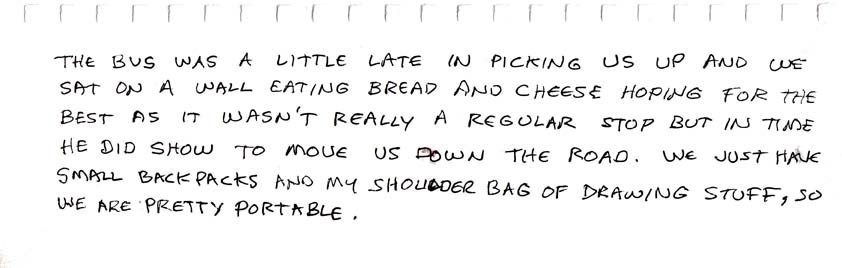 THE BUS WAS A LITTLE LATE IN PICKING US UP AND WE
SAT ON A WALL EATING BREAD AND CHEESE HOPING FOR THE
BEST AS IT WASN'T REALLY A REGULAR STOP BUT IN TIME
HE DID SHOW TO MOVE US DOWN THE ROAD. WE JUST HAVE
SMALL BACKPACKS AND MY SHOULDER BAG OF DRAWING STUFF, SO
WE ARE PRETTY PORTABLE.